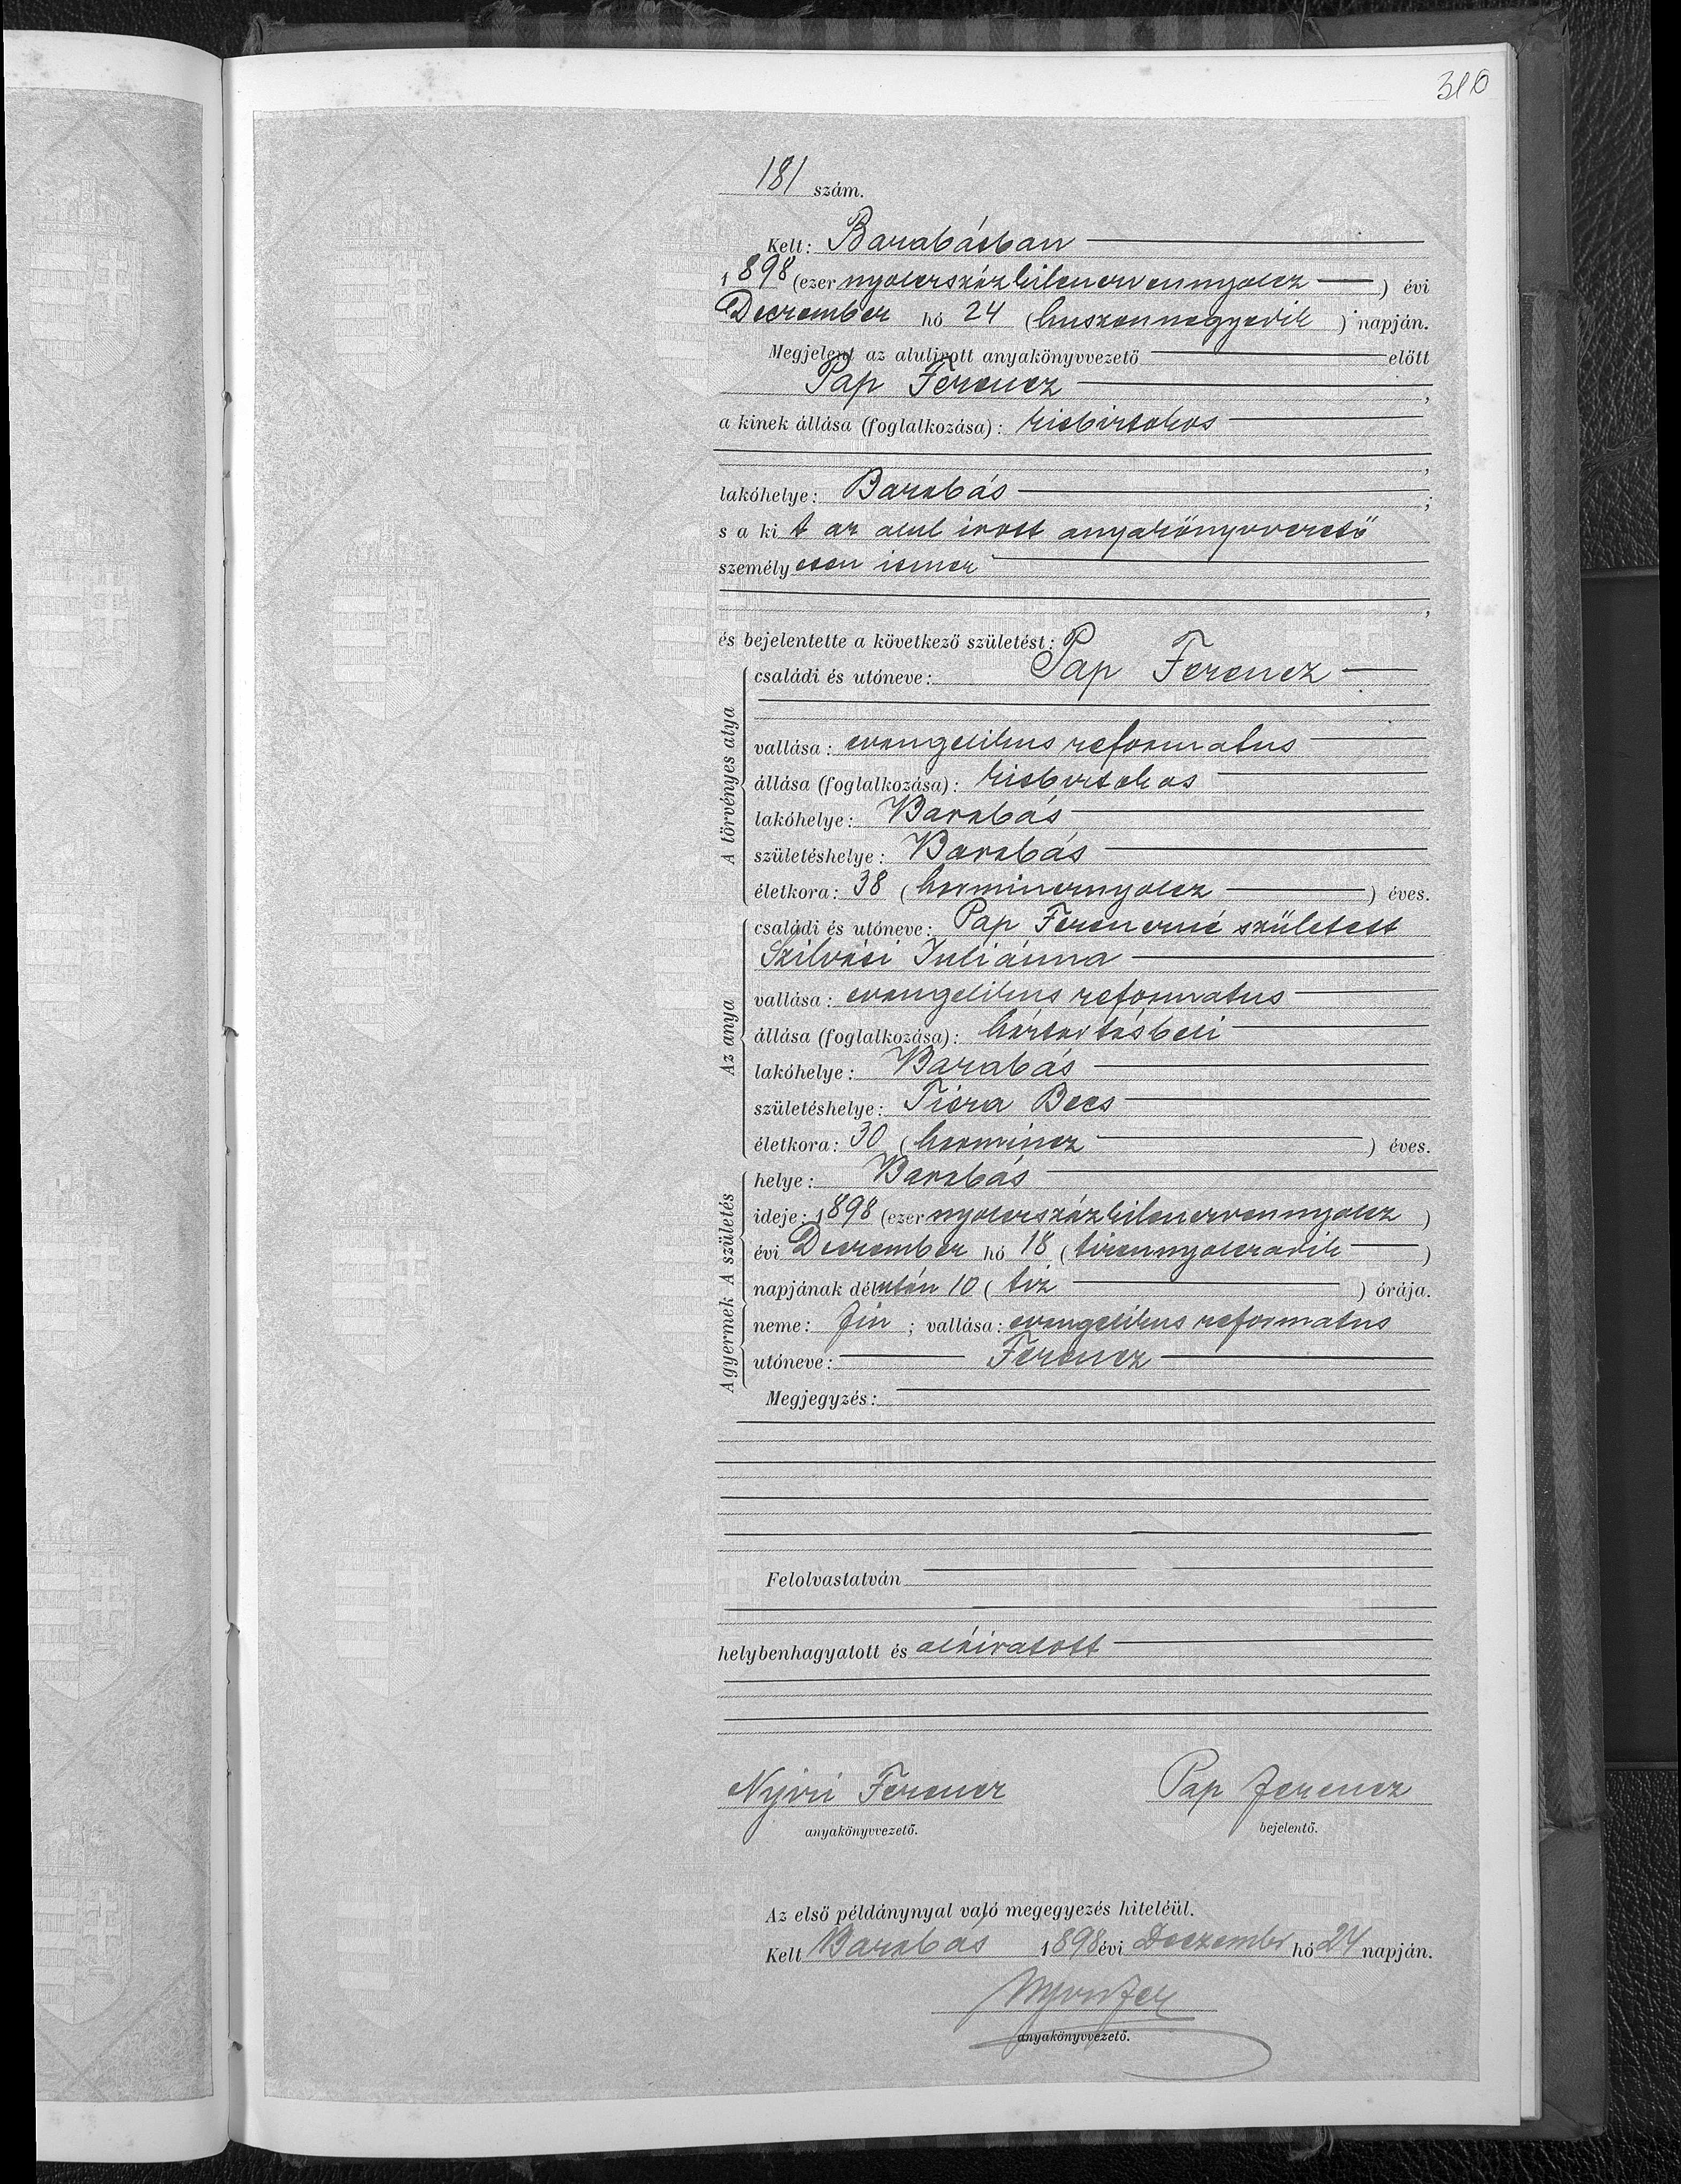 310
181 szám.
Kelt: Barabásban
1898 (ezer nyolczszázkilenczvennyolcz) évi
Deczember hó 24 (huszonnegyedik) napján.
Megjelent az alulirott anyakönyvvezető előtt
Pap Ferencz,
a kinek állása (foglalkozása): kisbirtokos
,
lakóhelye: Barabás;
s a kit az alul irott anyakönyvvezető
személyesen ismer
,
és bejelentette a következő születést:
A törvényes atya
családi és utóneve: Pap Ferencz
vallása: evangelikus reformatus
állása (foglalkozása): kisbirtokos
lakóhelye: Barabás
születéshelye: Barabás
életkora: 38 (harmincznyolcz) éves.
Az anya
családi és utóneve: Pap Ferenczné született
Szilvási Juliánna
vallása: evangelikus reformatus
állása (foglalkozása): háztartásbeli
lakóhelye: Barabás
születéshelye: Tisza Becs
életkora: 30 (harmincz) éves.
A gyermek A születés
helye: Barabás
ideje: 1898 (ezer nyolczszázkilenczvennyolcz)
évi Deczember hó 18 (tizennyolczadik)
napjának délután 10 (tiz) órája.
neme: fiu; vallása: evangelikus reformatus
utóneve: Ferencz
Megjegyzés:
Felolvastatván
helybenhagyatott és aláiratott
Nyiri Ferencz Pap Ferencz
anyakönyvvezető. bejelentő.
Az első példánynyal való megegyezés hiteléül.
Kelt Barabás 1898 évi Deczember hó 24 napján.
Nyiri Fer
anyakönyvvezető.